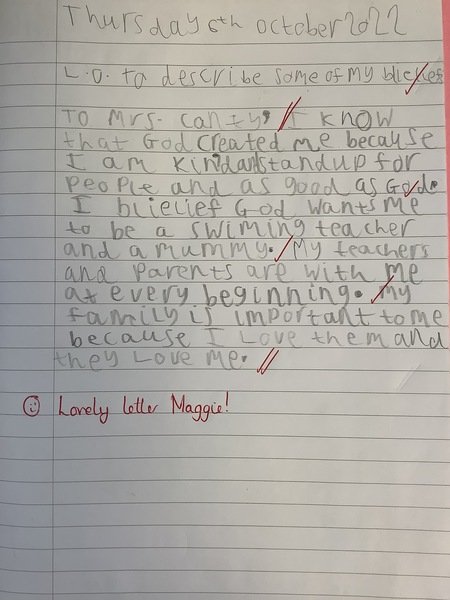 Thursday 6th october 2022
L.O. to describe some of my bliefes
To Mrs. canty, I know
that God created me because
I am kind and standup for
people and as good as God.
I blielief God wants me
to be a swiming teacher
and a mummy. My teachers
and parents are with me
at every beginning. My
family is important to me
because I love them and
they love me.
Lovely letter Maggie!